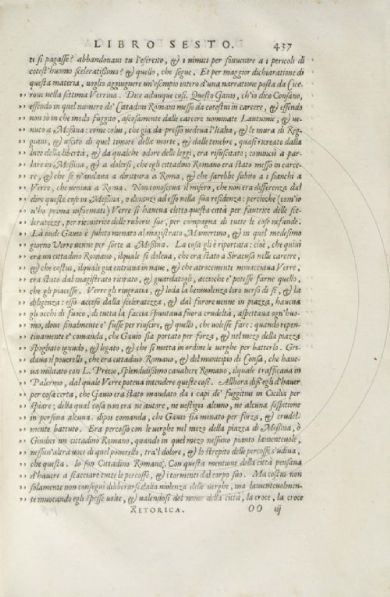 LIBRO SESTO. 437
ti si pagasse? abbandonaui tu l'esercito, & i minuti per souuenire a i pericoli di
cotest'huomo sceleratissimo? & quello, che segue. Et per maggior dichiaratione di
questa materia, uoglio aggiugnere un'esempio intero d'una narratione posta da Cice-
rone nella settima Verrina. Dice adunque così. Questo Gauio, ch'io dico Consano,
essendo in quel numero de' Cittadini Romani messo da costui in carcere, & essendo
non sò in che modo fuggito, ascosamente dalle carcere nominate Lautumie, & ue-
nuto a Messina: come colui, che già da presso uedeua l'Italia, & le mura di Reg-
giani, & uscito di quel timore della morte, & dalle tenebre, quasi ricreato dalla
luce della libertà, & da qualche odore delle leggi, era risuscitato; cominciò a par-
lare in Messina, & a dolersi, che egli cittadino Romano era stato messo in carce-
re, & che se n'andaua a dirittura a Roma, & che sarebbe subito a i fianchi a
Verre, che ueniua a Roma. Non conosceua il misero, che non era differenza dal
dire queste cose in Messina,
giorno Verre uenne per sorte a Messina. La cosa gli è riportata: cioè, che quiui
era un cittadino Romano, ilquale si doleua, che era stato a Siracusa nelle carcere,
& che costui, ilquale già entraua in naue, & che atrocemente minacciaua Verre,
era stato dal magistrato ritirato, & guardatogli, accioche e' potesse farne quello,
che gli piacesse. Verre gli ringratia, & loda la beniuolenza loro uerso di se, & la
diligenza: esso acceso dalla sceleratezza, & dal furore uenne in piazza, haueua
gli occhi di fuoco, di tutta la faccia spuntaua fuora crudeltà, aspettaua ogn'huo-
mo, doue finalmente e' fusse per riuscire, & quello, che uolesse fare: quando repen-
tinamente e' comanda, che Gauio sia portato per forza, & nel mezo della piazza
spogliato ignudo, & legato, & che si metta in ordine le uerghe per batterlo. Gri-
daua il pouerello, che era cittadino Romano, & del municipio di Consa, che haue-
ua militato con L. Pretio splendidissimo caualiere Romano, ilquale trafficaua in
Palermo, dal quale Verre poteua intendere queste cose. Allhora disse egli d'hauer
per cosa certa, che Gauio era stato mandato da i capi de' fuggitiui in Cicilia per
spiare; della qual cosa non era ne autore, ne uestigio alcuno, ne alcuna sospettione
in persona alcuna. dipoi comanda, che Gauio sia menato per forza, & crudel-
mente battuto. Era percosso con le uerghe nel mezo della piazza di Messina, ò
Giudici un cittadino Romano, quando in quel mezo nessuno pianto lamenteuole,
nessun'altra uoce di quel pouerello, tra'l dolore, & lo strepito delle percosse s'udiua,
che questa. Io son Cittadino Romano. Con questa mentione della città pensaua
d'hauere a scacciare tutte le percosse, & i tormenti dal corpo suo. Ma costui non
solamente non conseguì di liberarsi dalla uiolenza delle uerghe, ma lamenteuolmen-
te inuocando egli spesse uolte, & ualendosi del nome della città, la croce, la croce
RETORICA. OO iij